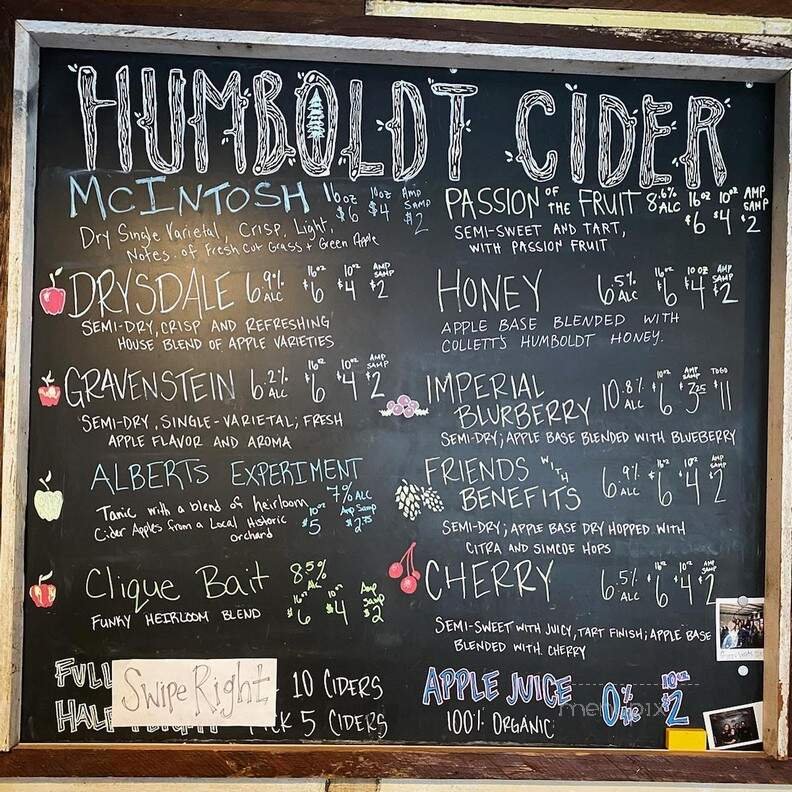 HUMBOLDT CIDER
McINTOSH 16oz $6 10oz $4 AMP SAMP $2
Dry Single Varietal, Crisp, Light,
Notes of Fresh Cut Grass + Green Apple
DRYSDALE 6.9% ALC 16oz $6 10oz $4 AMP SAMP $2
SEMI-DRY, CRISP AND REFRESHING
HOUSE BLEND OF APPLE VARIETIES
GRAVENSTEIN 6.2% ALC 16oz $6 10oz $4 AMP SAMP $2
SEMI-DRY, SINGLE-VARIETAL; FRESH
APPLE FLAVOR AND AROMA
ALBERTS EXPERIMENT
7% ALC
Tanic with a blend of heirloom
Cider Apples from a Local Historic
orchard
10oz $5 Amp Samp $2.75
Clique Bait 8.5% ALC
FUNKY HEIRLOOM BLEND
16oz $6 10oz $4 Amp Samp $2
FULL
Swipe Right
10 CIDERS
HALF
5 CIDERS
PASSION OF THE FRUIT 8.6% ALC 16oz $6 10oz $4 AMP SAMP $2
SEMI-SWEET AND TART,
WITH PASSION FRUIT
HONEY 6.5% ALC 16oz $6 10oz $4 AMP SAMP $2
APPLE BASE BLENDED WITH
COLLETT'S HUMBOLDT HONEY.
IMPERIAL
BLURBERRY
10.8% ALC 10oz $6 AMP SAMP $3.25 TOGO $11
SEMI-DRY; APPLE BASE BLENDED WITH BLUEBERRY
FRIENDS WITH
BENEFITS
6.9% ALC 16oz $6 10oz $4 AMP SAMP $2
SEMI-DRY; APPLE BASE DRY HOPPED WITH
CITRA AND SIMCOE HOPS
CHERRY 6.5% ALC 16oz $6 10oz $4 AMP SAMP $2
SEMI-SWEET WITH JUICY, TART FINISH; APPLE BASE
BLENDED WITH CHERRY
APPLE JUICE 0% alc 10oz $2
100% ORGANIC
menupix